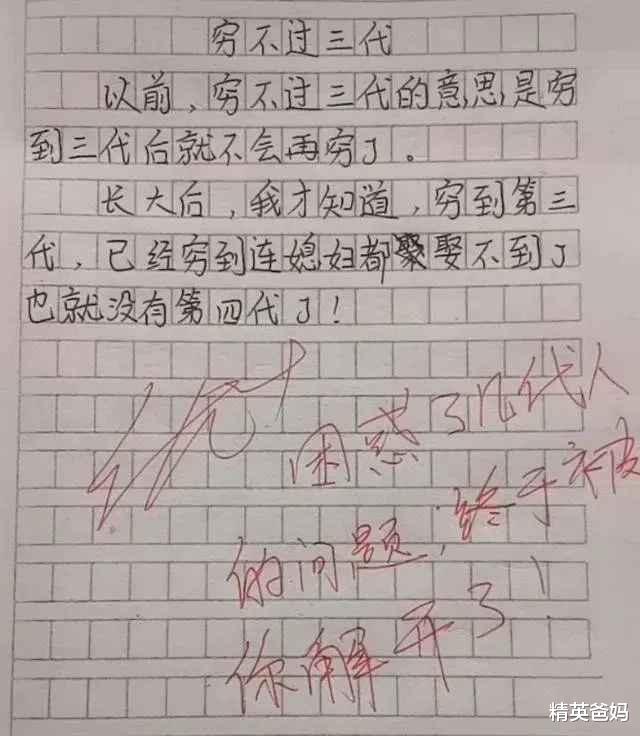 穷不过三代
以前，穷不过三代的意思是穷
到三代后就不会再穷了。
长大后，我才知道，穷到第三
代，已经穷到连媳妇都娶不到了
也就没有第四代了！
优+
困惑了几代人
的问题，终于被
你解开了！
精英爸妈